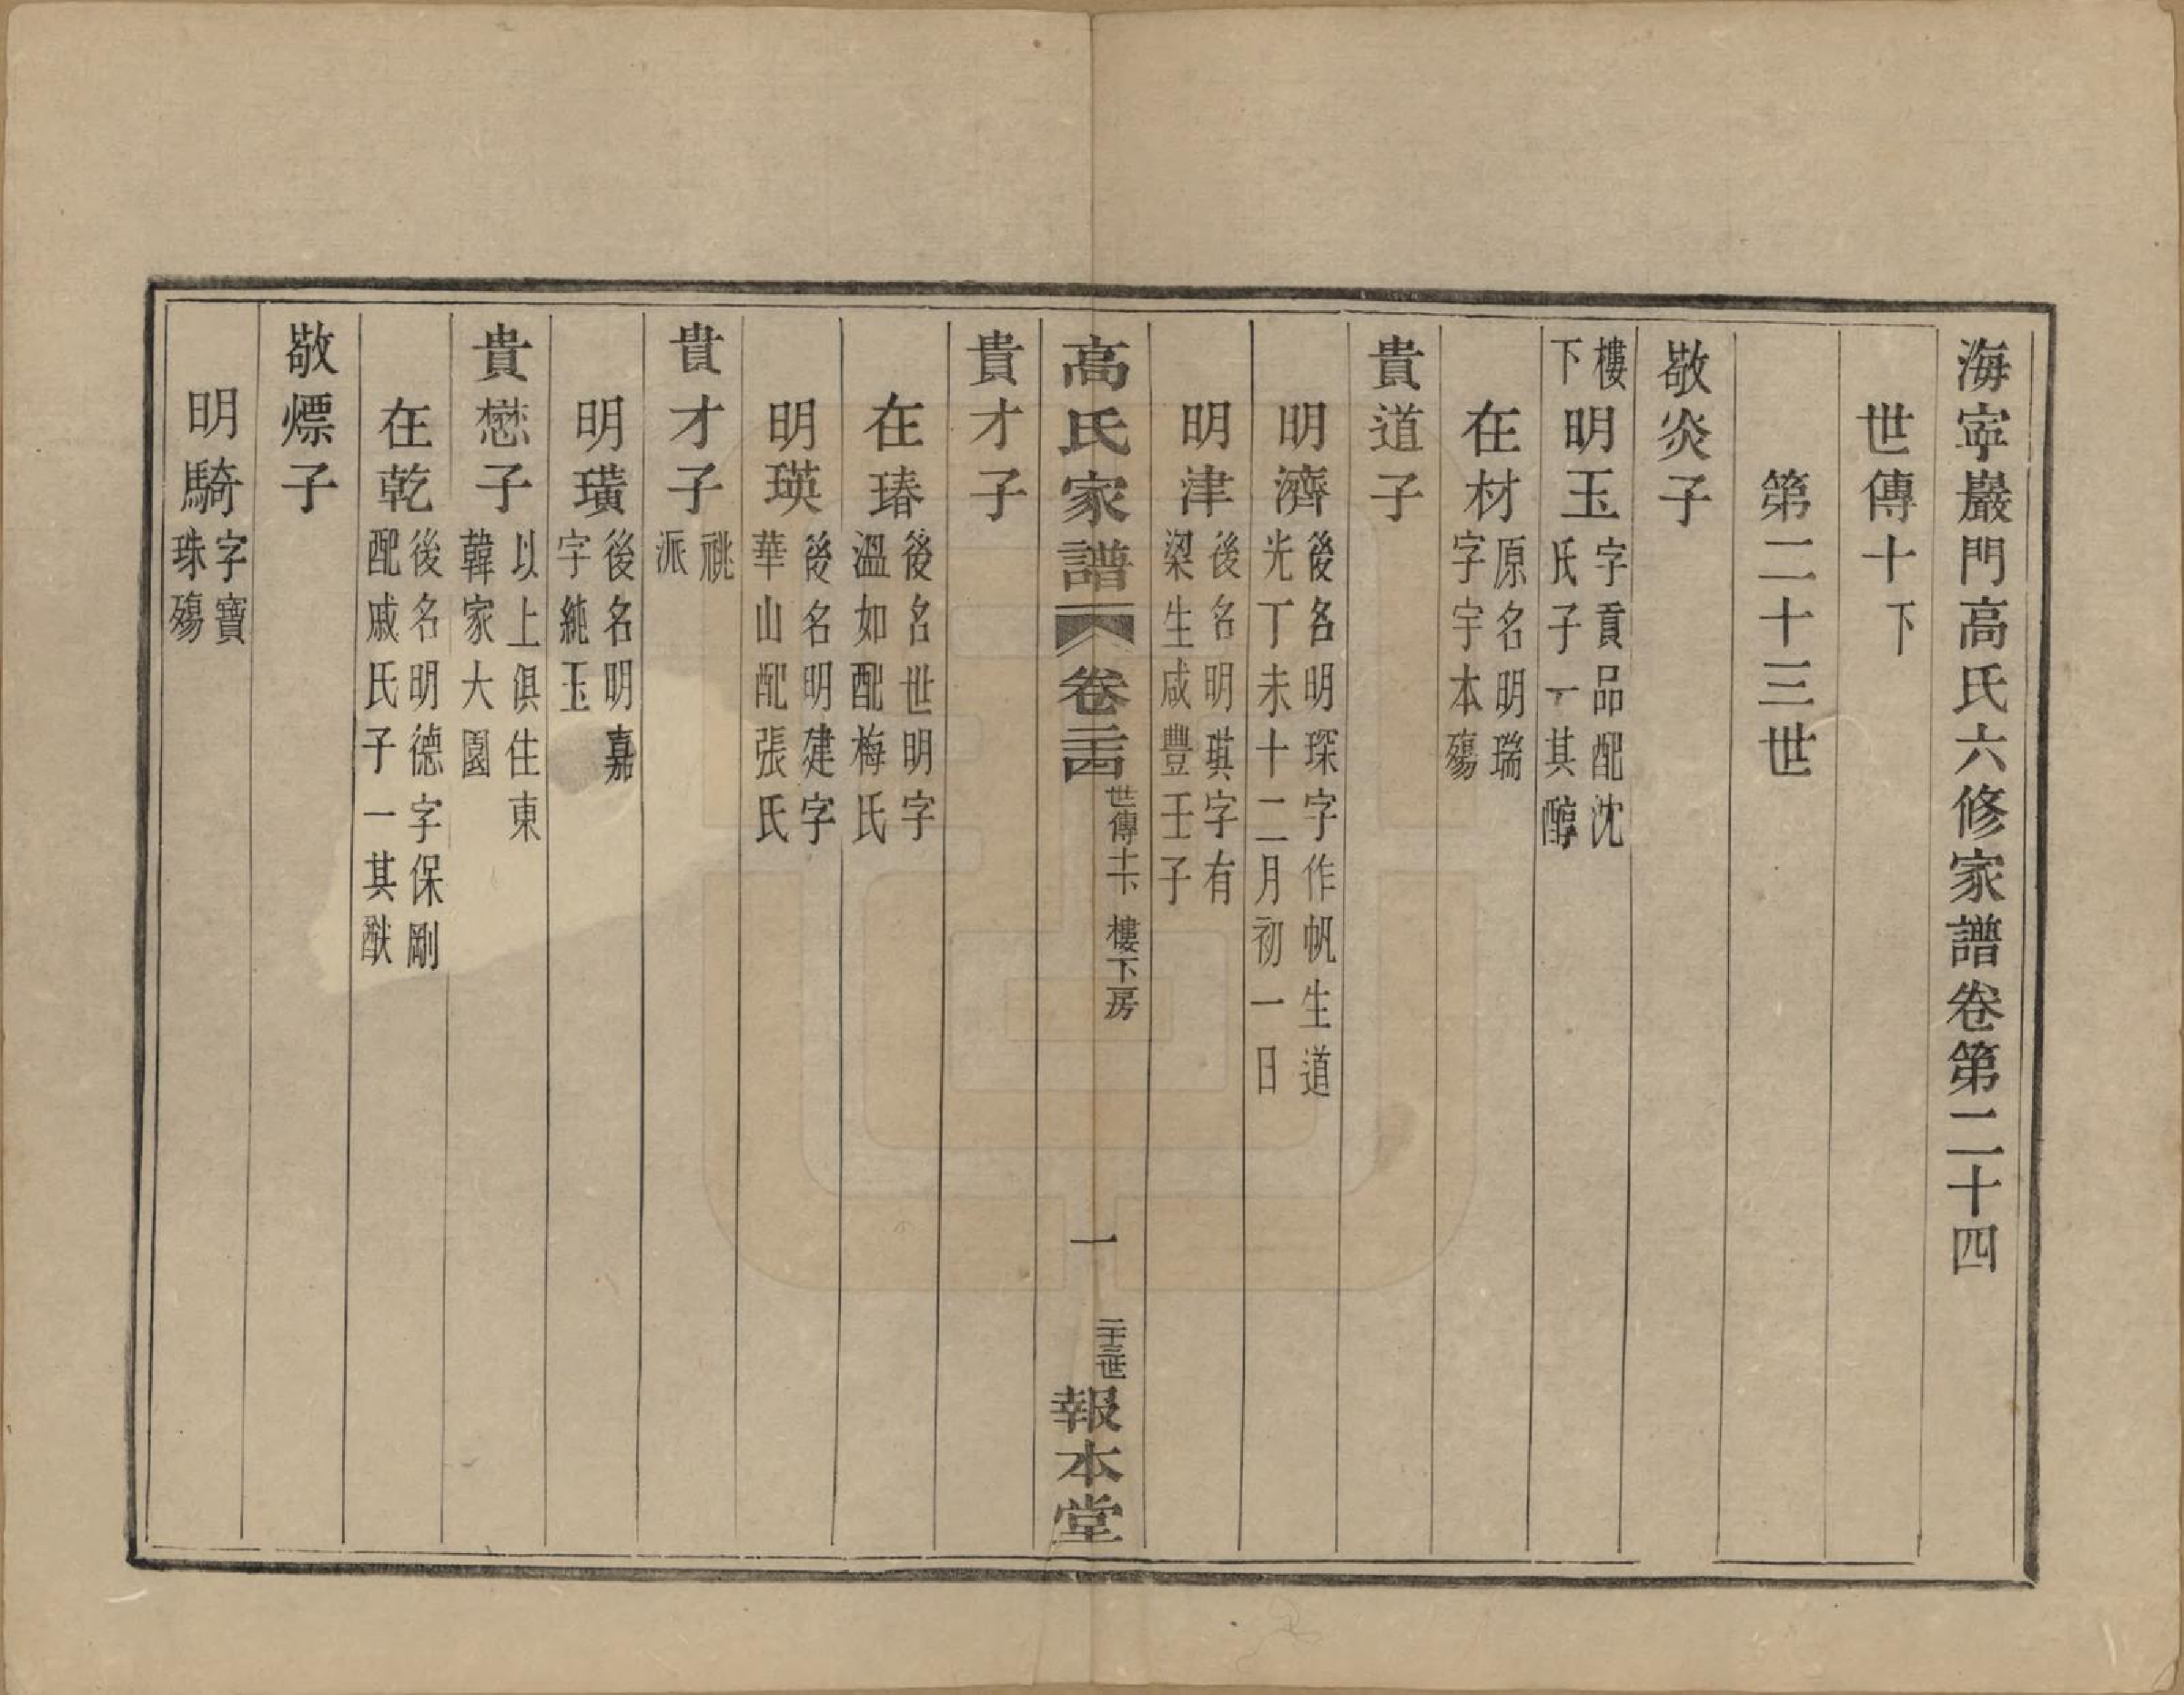 海寧巖門高氏六修家譜卷第二十四
世傳十下
第二十三世
敬炎子
樓下
明玉
字貢品配沈
氏子一其醇
在材
原名明瑞
字宇本殤
貴道子
明濟
後名明琛字作帆生道
光丁未十二月初一日
明津
後名明琪字有
梁生咸豐壬子
高氏家譜
卷二十四
世傳十下 樓下房
一
二十三世
報本堂
貴才子
在瑃
後名世明字
溫如配梅氏
明瑛
後名明建字
華山配張氏
貴才子
祧
派
明璜
後名明嘉
字純玉
貴懋子
以上俱住東
韓家大園
在乾
後名明德字保剛
配戚氏子一其猷
敬熛子
明騎
字寶
珠殤